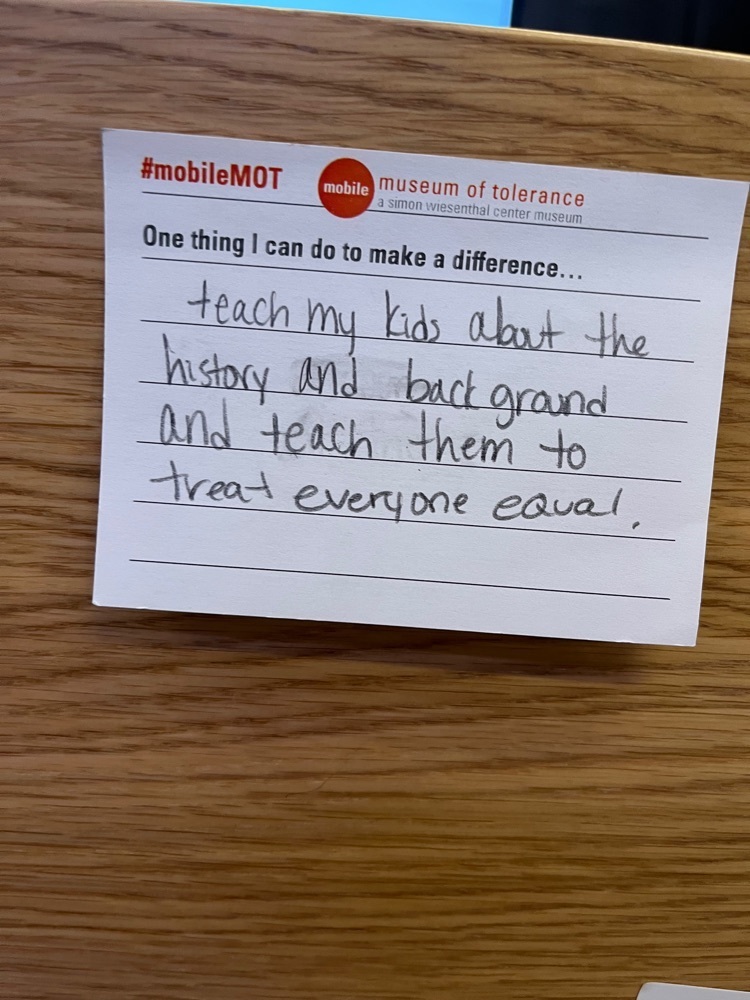 #mobileMOT mobile museum of tolerance
a simon wiesenthal center museum
One thing I can do to make a difference...
teach my kids about the
history and back ground
and teach them to
treat everyone equal.